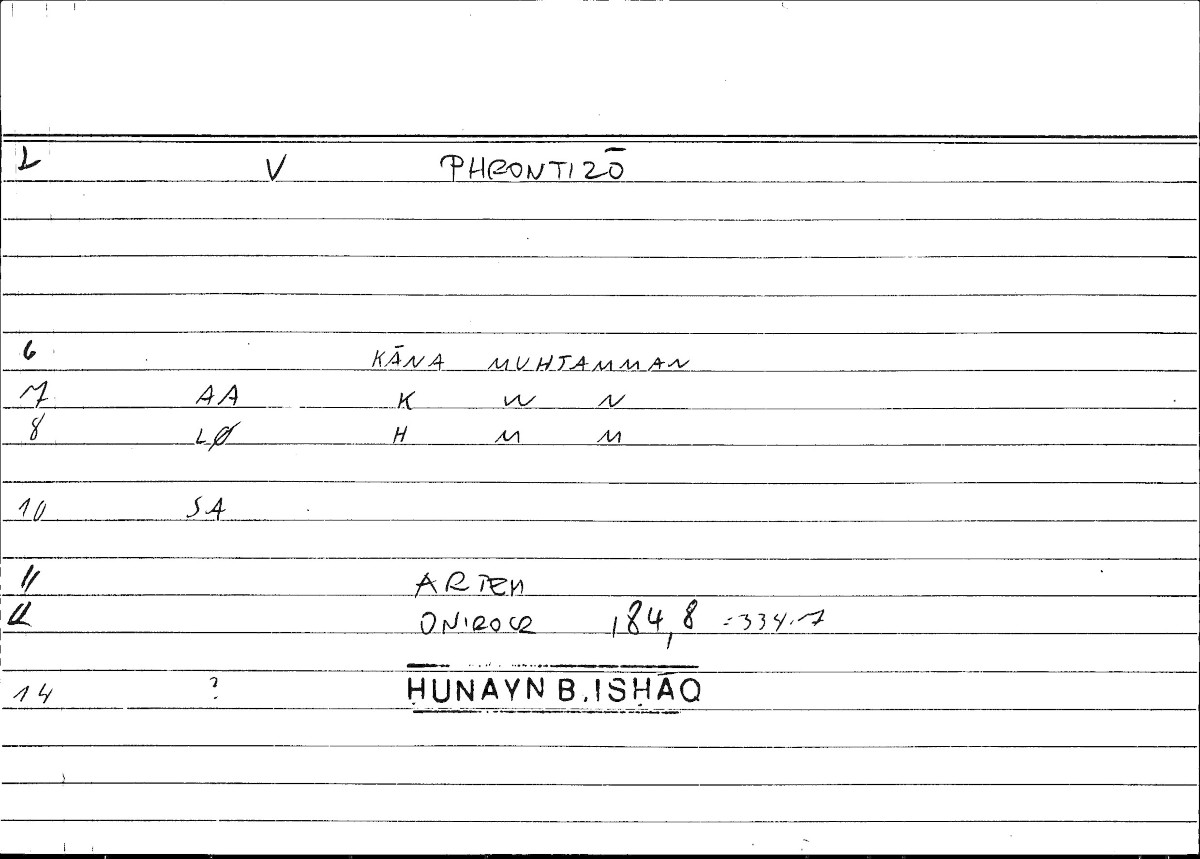 2 V PHRONTIZŌ
6 KĀNA MUHTAMMAN
7 AA K W N
8 LØ H M M
10 SA
11 ARTEM
12 ONIROCR 184,8 = 334.7
14 ? ḤUNAYN B. ISḤĀQ